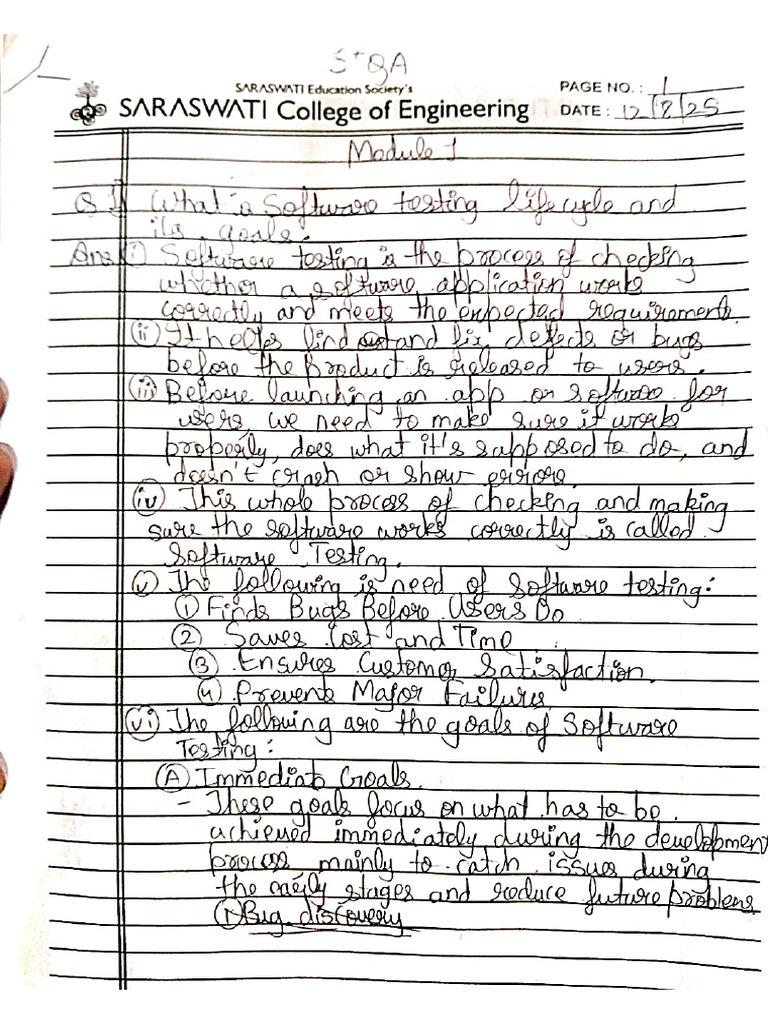 STQA
SARASWATI Education Society's
SARASWATI College of Engineering
PAGE NO. : 1
DATE : 12/8/25
Module 1
Q 1] What is Software testing lifecycle and
its goals.
Ans (i) Software testing is the process of checking
whether a software application works
correctly and meets the expected requirements.
(ii) It helps find out and fix defects or bugs
before the product is released to users.
(iii) Before launching an app or software for
users, we need to make sure it works
properly, does what it's supposed to do, and
doesn't crash or show errors.
(iv) This whole process of checking and making
sure the software works correctly is called
Software Testing.
(v) The following is need of software testing:
(1) Finds Bugs Before Users Do
(2) Saves Cost and Time
(3) Ensures Customer Satisfaction.
(4) Prevents Major Failures
(vi) The following are the goals of Software
Testing:
(A) Immediate Goals.
- These goals focus on what has to be
achieved immediately during the development
process mainly to catch issues during
the early stages and reduce future problems
(1) Bug discovery